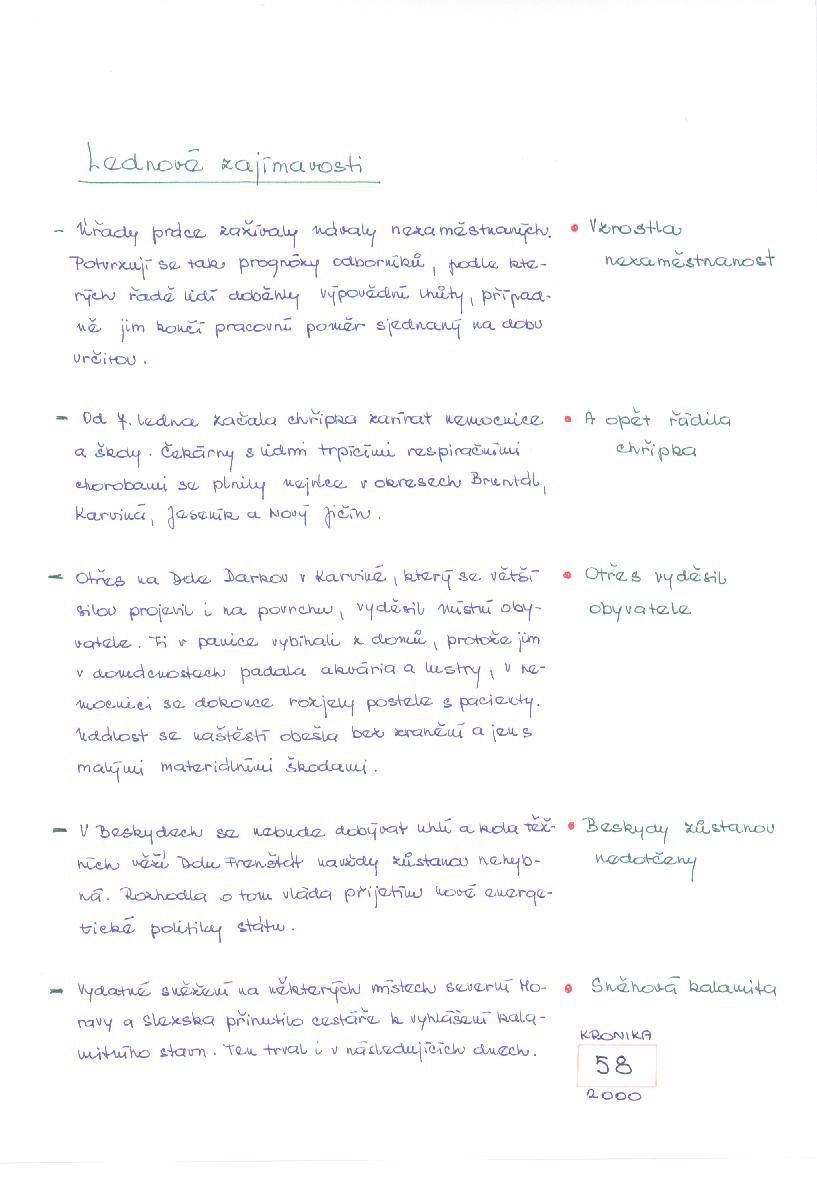 Lednové zajímavosti
- Úřady práce zažívaly návaly nezaměstnaných.
Potvrzují se tak prognózy odborníků, podle kte-
rých řadě lidí doběhly výpovědní lhůty, případ-
ně jim končí pracovní poměr sjednaný na dobu
určitou.
• Vzrostla
nezaměstnanost
- Od 7. ledna začala chřipka zavírat nemocnice
a školy. Čekárny s lidmi trpícími respiračními
chorobami se plnily nejvíce v okresech Bruntál,
Karviná, Jeseník a Nový Jičín.
• A opět řádila
chřipka
- Otřes na Dole Darkov v Karviné, který se větší
silou projevil i na povrchu, vyděsil místní oby-
vatele. Ti v panice vybíhali z domů, protože jim
v domácnostech padala akvária a lustry, v ne-
mocnici se dokonce rozjely postele s pacienty.
Událost se naštěstí obešla bez zranění a jen s
malými materiálními škodami.
• Otřes vyděsil
obyvatele
- V Beskydech se nebude dobývat uhlí a kola těž-
ních věží Dolu Frenštát navždy zůstanou nehyb-
ná. Rozhodla o tom vláda přijetím nové energe-
tické politiky státu.
• Beskydy zůstanou
nedotčeny
- Vydatné sněžení na některých místech severní Mo-
ravy a Slezska přinutilo cestáře k vyhlášení kala-
mitního stavu. Ten trval i v následujících dnech.
• Sněhová kalamita
KRONIKA
58
2000